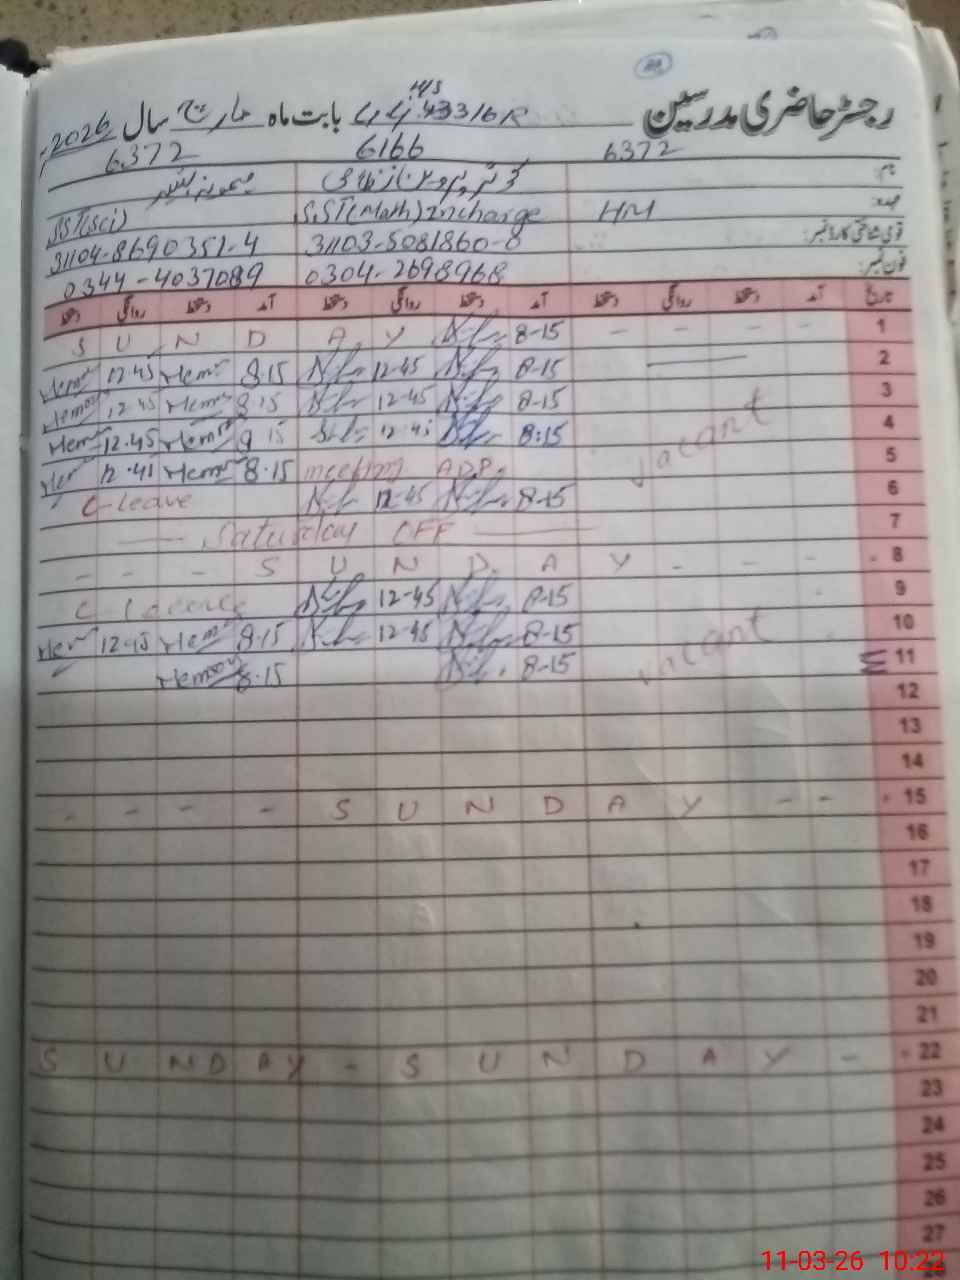 رجسٹر حاضری مدرسین بابت ماہ مارچ سال 2026
H/S 44.43316R
6372 6166 6372
نام:
عہدہ: HM SST(Math) Incharge SST(Sci)
قومی شناختی کارڈ نمبر: 31103-5081860-8 31104-8690351-4
فون نمبر: 0304-2698968 0344-4037089
تاریخ آمد دستخط روانگی دستخط آمد دستخط روانگی دستخط آمد دستخط روانگی دستخط
S U N D A Y 8-15 - - - - 1
12-45 8-15 12-45 8-15 2
12-45 8-15 12-45 8-15 3
12-45 8 15 12-45 8:15 4
12-45 8-15 meeting ADP. vacant 5
C-leave 12-45 8-15 6
Saturday OFF 7
- - - S U N D A Y - - - 8
C-Leave 12-45 8-15 9
12-45 8-15 12-45 8-15 10
8-15 8-15 vacant 11
12
13
14
- - - - S U N D A Y - - 15
16
17
18
19
20
21
S U N D A Y - S U N D A Y - 22
23
24
25
26
27
11-03-26 10:22